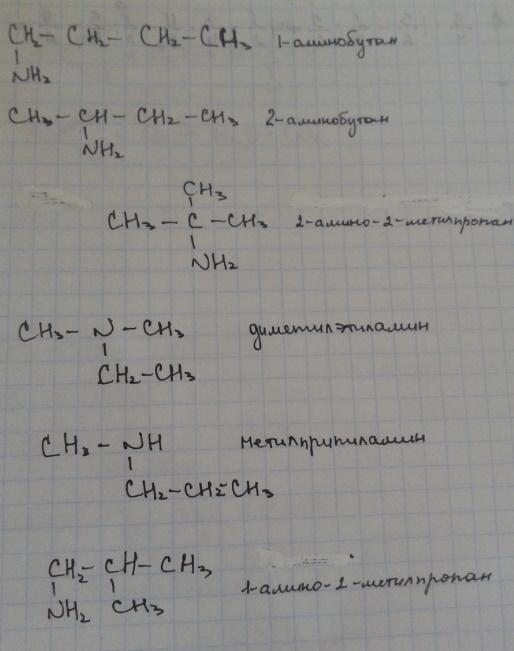 CH₂- CH₂- CH₂-CH₃ 1-аминобутан
NH₂
CH₃ - CH - CH₂ -CH₃ 2-аминобутан
NH₂
CH₃
CH₃ - C -CH₃ 2-амино-2-метилпропан
NH₂
CH₃- N -CH₃ диметилэтиламин
CH₂-CH₃
CH₃- NH метилприпиламин
CH₂-CH₂-CH₃
CH₂- CH- CH₃
NH₂ CH₃ 1-амино-2-метилпропан